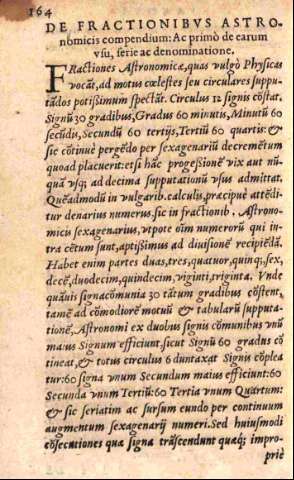 164
DE FRACTIONIBVS ASTRO-
nomicis compendium: Ac primò de earum
vsu, serie ac denominatione.
FRactiones Astronomicæ, quas vulgò Physicas
vocāt, ad motus cœlestes seu circulares suppu-
tādos potißimum spectāt. Circulus 12 signis cōstat.
Signū 30 gradibus, Gradus 60 minutis, Minutū 60
secūdis, Secundū 60 tertijs, Tertiū 60 quartis: &
sic cōtinuè pergēdo per sexagenariū decremētum
quoad placuerit: etsi hāc progeßionē vix aut nū-
quā vsq; ad decima supputationū vsus admittat.
Quēadmodū in vulgarib. calculis, præcipuè attēdi-
tur denarius numerus, sic in fractionib. Astrono-
micis sexagenarius, vtpote oīm numerorū qui in-
tra cētum sunt, aptißimus ad diuisionē recipiēdā.
Habet enim partes duas, tres, quatuor, quinq;, sex,
decē, duodecim, quindecim, viginti, triginta. Vnde
quāuis signa cōmunia 30 tātum gradibus cōstent,
tamē ad cōmodiorē motuū & tabularū supputa-
tionē, Astronomi ex duobus signis cōmunibus vnū
maius Signum efficiunt, sicut Signū 60 gradus cō
tineat, & totus circulus 6 duntaxat Signis cōplea
tur: 60 signa vnum Secundum maius efficiunt: 60
Secunda vnum Tertiū: 60 Tertia vnum Quartum:
& sic seriatim ac sursum eundo per continuum
augmentum sexagenarij numeri. Sed huiusmodi
cōsecutiones quæ signa trāscendunt quaq; impro-
priè